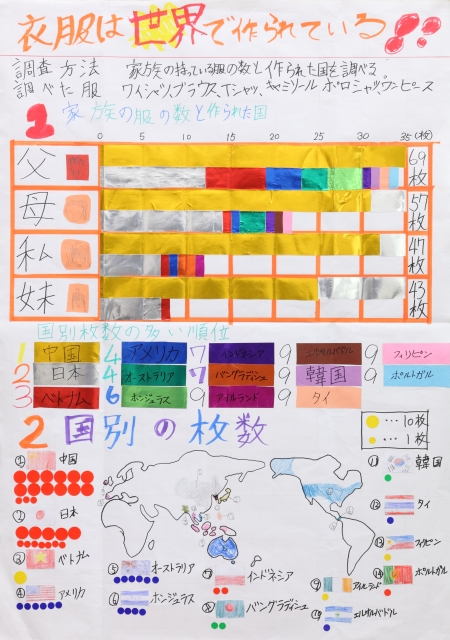 衣服は世界で作られている!!
調査方法 家族の持っている服の数と作られた国を調べる
調べた服 ワイシャツ、ブラウス、Tシャツ、キャミソール ポロシャツ、ワンピース
1 家族の服の数と作られた国
0 5 10 15 20 25 30 35(枚)
父 69枚
母 57枚
私 47枚
妹 43枚
国別枚数の多い順位
1 中国 4 アメリカ 7 インドネシア 9 エルサルバドル 9 フィリピン
2 日本 4 オーストラリア 7 バングラディシュ 9 韓国 9 ポルトガル
3 ベトナム 6 ホンジュラス 9 アイルランド 9 タイ
2 国別の枚数
…10枚
…1枚
① 中国
② 日本
③ ベトナム
④ アメリカ
⑤ オーストラリア
⑥ ホンジュラス
⑦ インドネシア
⑧ バングラディシュ
⑨ アイルランド
⑩ エルサルバドル
⑪ 韓国
⑫ タイ
⑬ フィリピン
⑭ ポルトガル